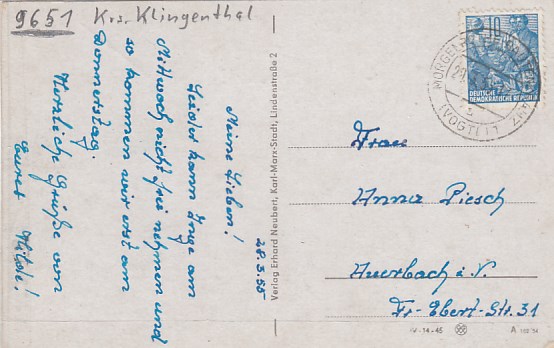 9651 Krs. Klingenthal
28.3.55
Meine Lieben!
Leider kann Inge am
Mittwoch nicht frei nehmen und
so kommen wir erst am
Donnerstag.
Herzliche Grüße von
Eurer Hilde!
Verlag Erhard Neubert, Karl-Marx-Stadt, Lindenstraße 2
10
DEUTSCHE
DEMOKRATISCHE REPUBLIK
(VOGTL)
Frau
Anna Piesch
Auerbach i. V.
Fr-Ebert-Str. 31
IV-14-45
A